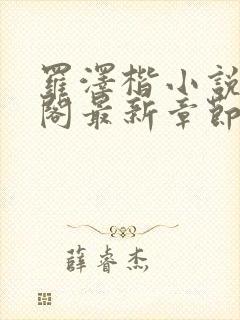 羅澤楷小說
閣最新章節
薛睿杰